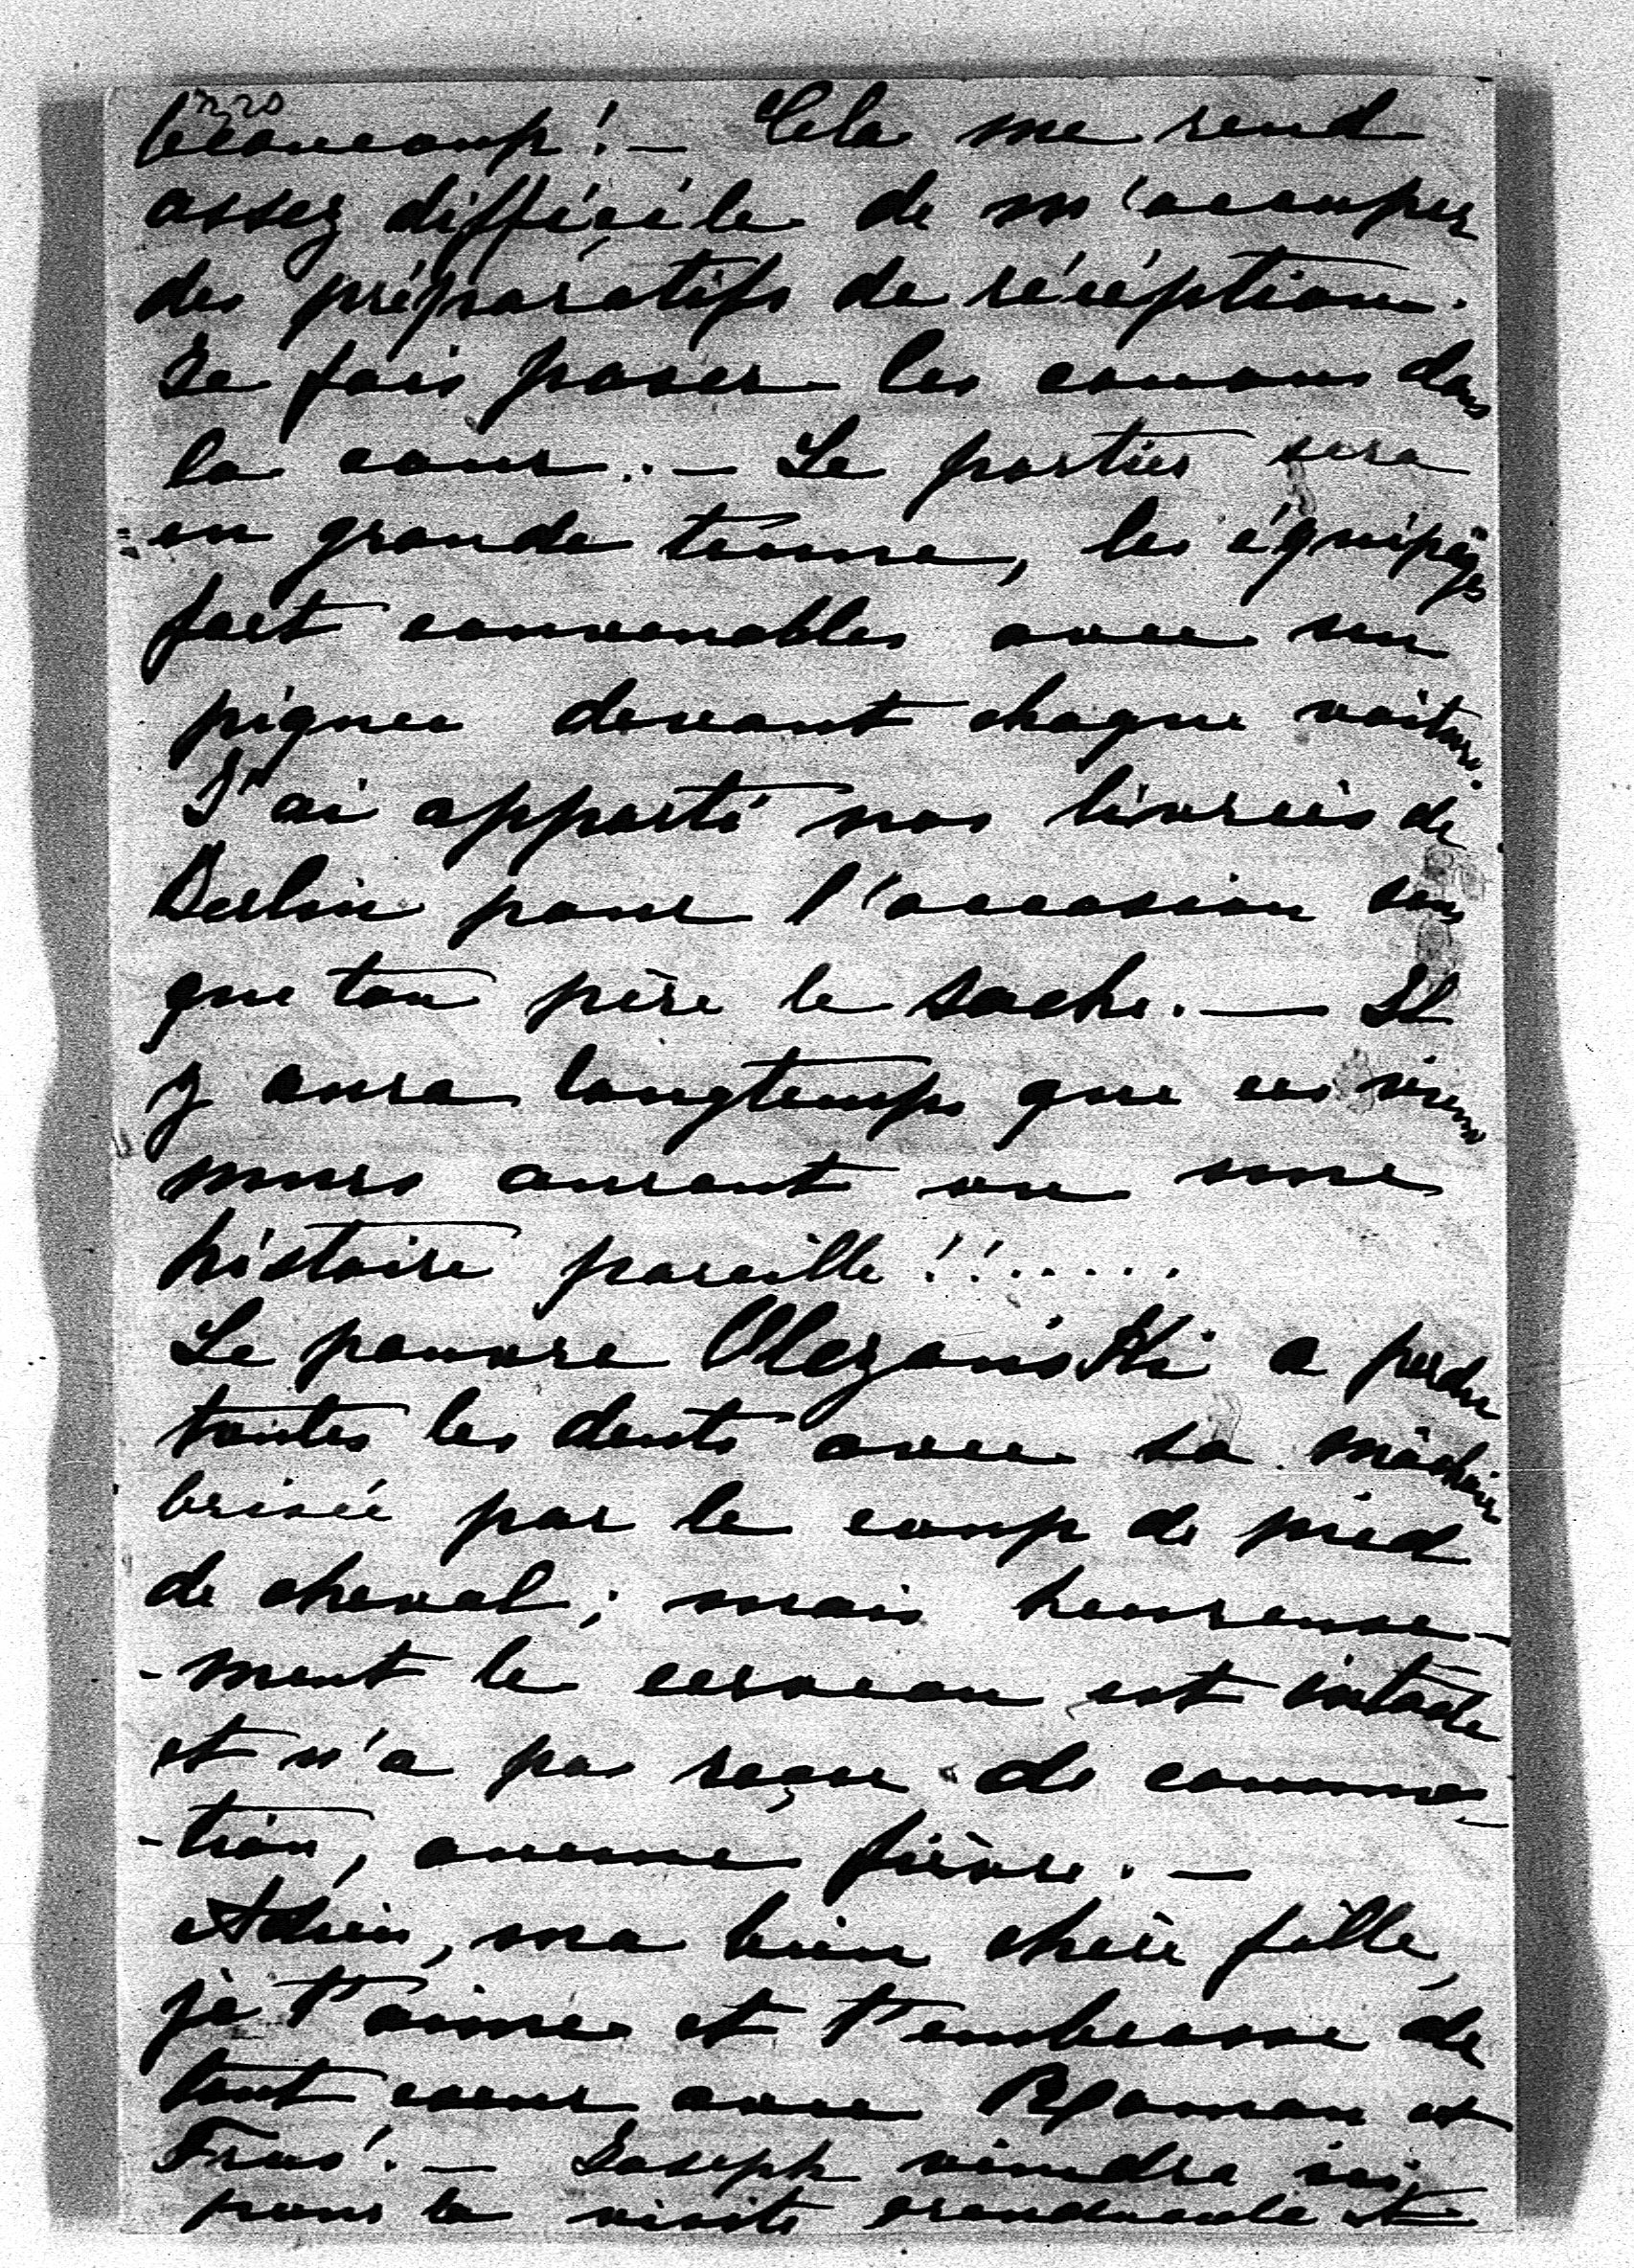 1220
beaucoup! — Cela me rend
assez difficile de m'occuper
des préparatifs de réception.
Je fais poser les canons dans
la cour. — Le portier sera
en grande tenue, les équipages
fort convenables avec un
piqueu devant chaque voiture.
J'ai apporté nos livrées de
Berlin pour l'occasion sans
que ton père le sache. — Il
y aura longtemps que ces vieux
murs auront vu une
histoire pareille!!......
Le pauvre Olszański a perdu
toutes les dents avec sa mâchoire
brisée par le coup de pied
de cheval; mais heureuse-
-ment le cerveau est intacte
et n'a pas reçu de commo-
-tion, aucune fièvre. —
Adieu, ma bien chère fille,
je t'aime et t'embrasse de
tout cœur avec Roman et
Frus'. — Joseph viendra ici
pour la visite grandducale et